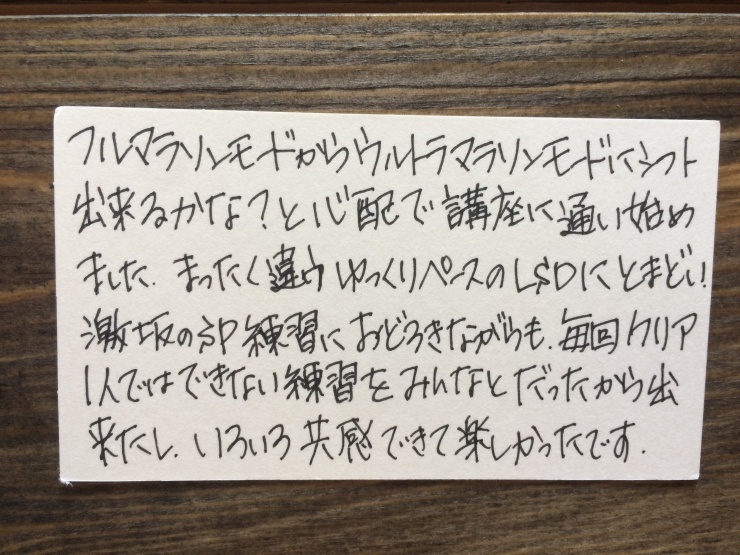 フルマラソンモードからウルトラマラソンモードにシフト
出来るかな?と心配で講座に通い始め
ました. まったく違うゆっくりペースのLSDにとまどい!
激坂のSP練習におどろきながらも. 毎回クリア
1人ではできない練習をみんなとだったから出
来たし. いろいろ共感できて楽しかったです.